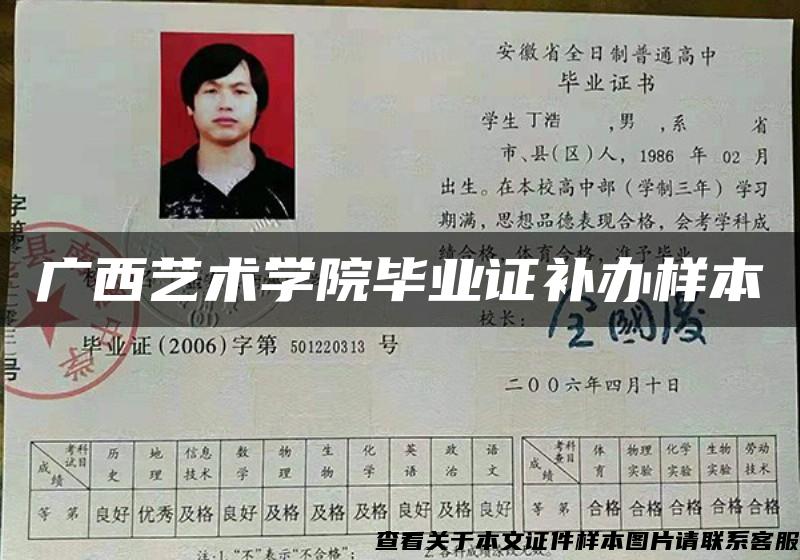 安徽省全日制普通高中
毕业证书
学生 丁浩 ,男 ,系 省
市、县(区)人, 1986 年 02 月
出生。在本校高中部(学制三年)学习
期满,思想品德表现合格,会考学科成
绩合格,体育合格,准予毕业
广西艺术学院毕业证补办样本
校长:
(01)
毕业证(2006)字第 501220313 号
二〇〇六年四月十日
考试科目 历史 地理 信息技术 数学 物理 生物 化学 英语 政治 语文
成绩
等第 良好 优秀 及格 良好 及格 及格 及格 良好 及格 良好
考查科目 体育 物理实验 化学实验 生物实验 劳动技术
成绩
等第 合格 合格 合格 合格 合格
注:1."不"表示"不合格";
2.各科成绩涂改无效。
查看关于本文证件样本图片请联系客服